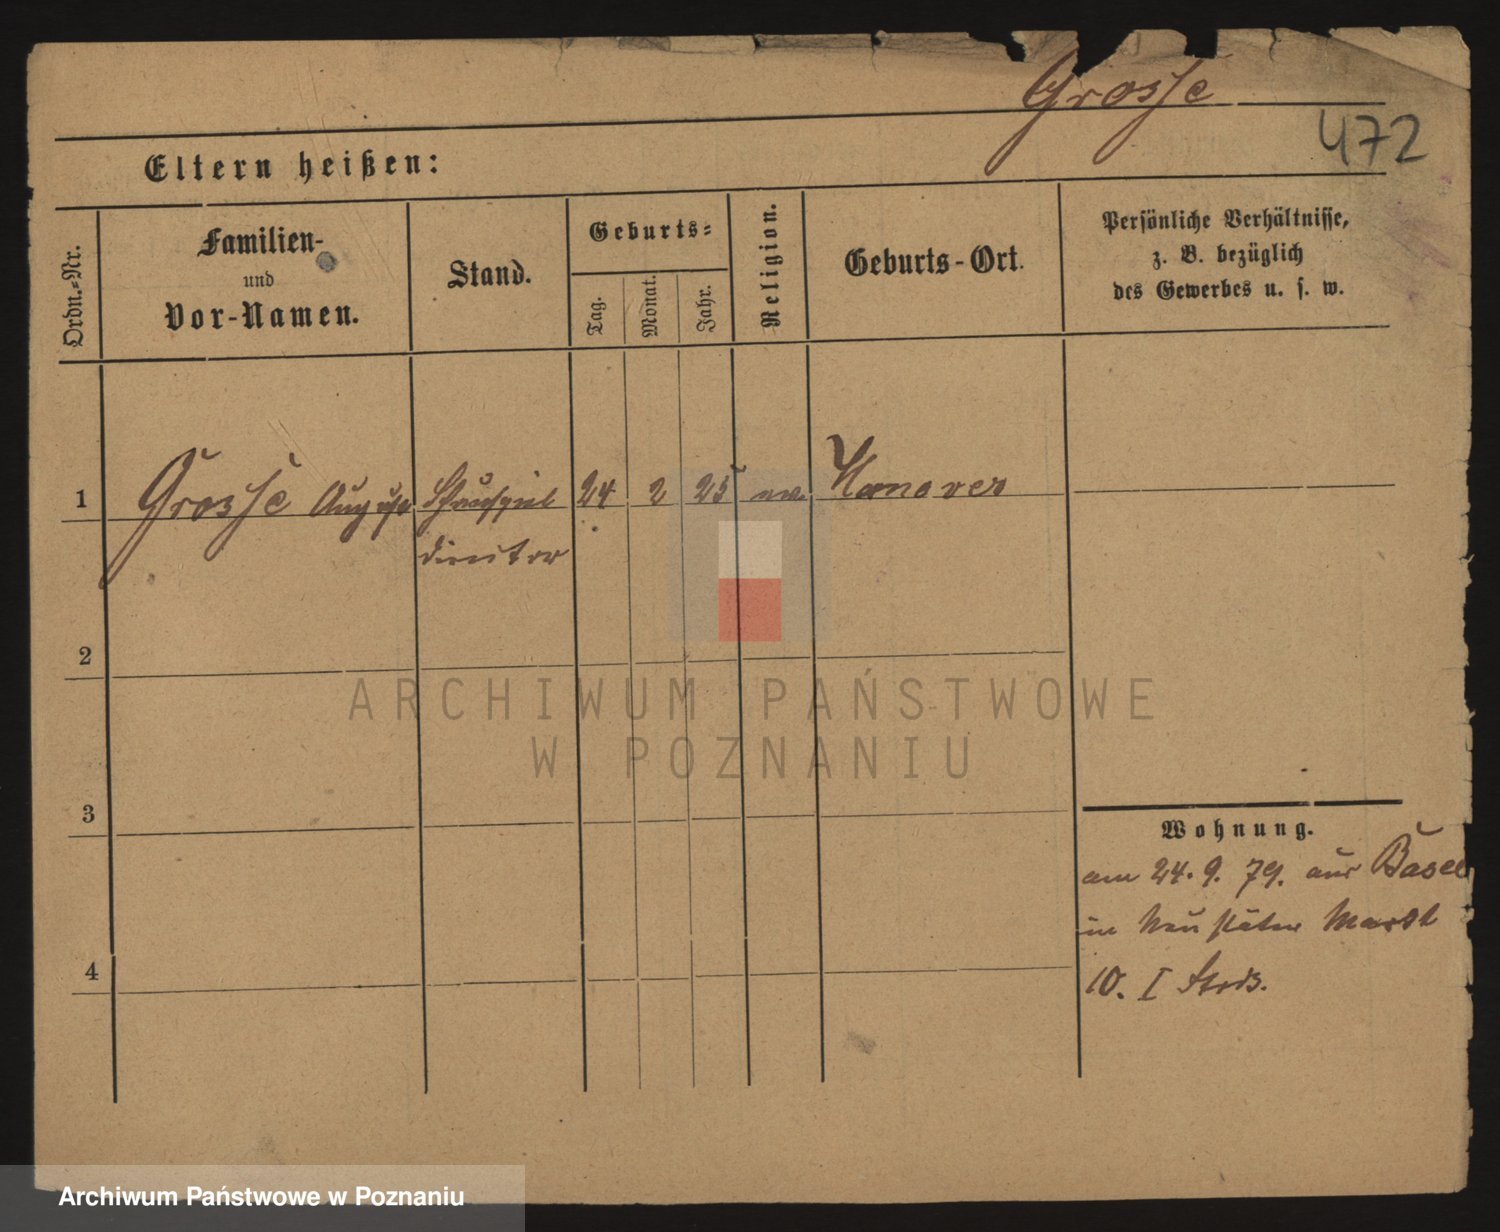 Grosse
472
Eltern heißen:
Ordn.-Nr.
Familien-
und
Vor-Namen.
Stand.
Geburts-
Tag.
Monat.
Jahr.
Religion.
Geburts-Ort.
Persönliche Verhältnisse,
z. B. bezüglich
des Gewerbes u. s. w.
1 Grosse August Schauspiel 24 2 25 ev. Hanover
direktor
2
ARCHIWUM PAŃSTWOWE
W POZNANIU
3
Wohnung.
am 24. 9. 79. aus Basel
in Neustädter Markt
10. I
4
Archiwum Państwowe w Poznaniu